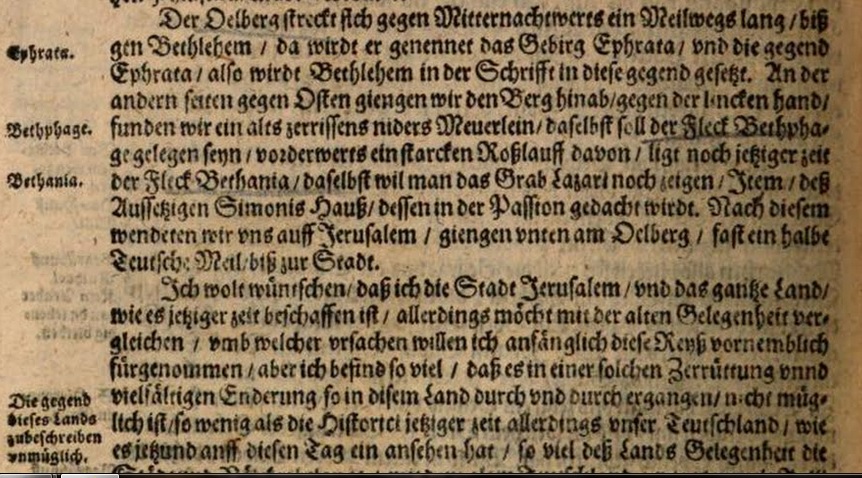 Der Oelberg streckt sich gegen Mitternachtwerts ein Meilwegs lang / biß
Ephrata.
gen Bethlehem / da wirdt er genennet das Gebirg Ephrata / vnd die gegend
Ephrata / also wirdt Bethlehem in der Schrifft in diese gegend gesetzt. An der
andern seiten gegen Osten giengen wir den Berg hinab / gegen der lincken hand /
Bethphage.
funden wir ein alts zerrissens niders Meuerlein / daselbst soll der Fleck Bethpha-
ge gelegen seyn / vorderwerts ein starcken Roßlauff davon / ligt noch jetziger zeit
Bethania.
der Fleck Bethania / daselbst wil man das Grab Lazari noch zeigen / Item / deß
Aussetzigen Simonis Hauß / dessen in der Passion gedacht wirdt. Nach diesem
wendeten wir vns auff Jerusalem / giengen vnten am Oelberg / fast ein halbe
Teutsche Meil biß zur Stadt.
Ich wolt wüntschen / daß ich die Stadt Jerusalem / vnd das gantze Land /
wie es jetziger zeit beschaffen ist / allerdings möcht mit der alten Gelegenheit ver-
gleichen / vmb welcher vrsachen willen ich anfänglich diese Reyß vornemblich
fürgenommen / aber ich befind so viel / daß es in einer solchen Zerrüttung vnnd
Die gegend
dieses Lands
zubeschreiben
vnmüglich.
vielfältigen Enderung so in disem Land durch vnd durch ergangen / nicht müg-
lich ist / so wenig als die Historici jetziger zeit allerdings vnser Teutschland / wie
es jetzund auff diesen Tag ein ansehen hat / so viel deß Lands Gelegenheit die